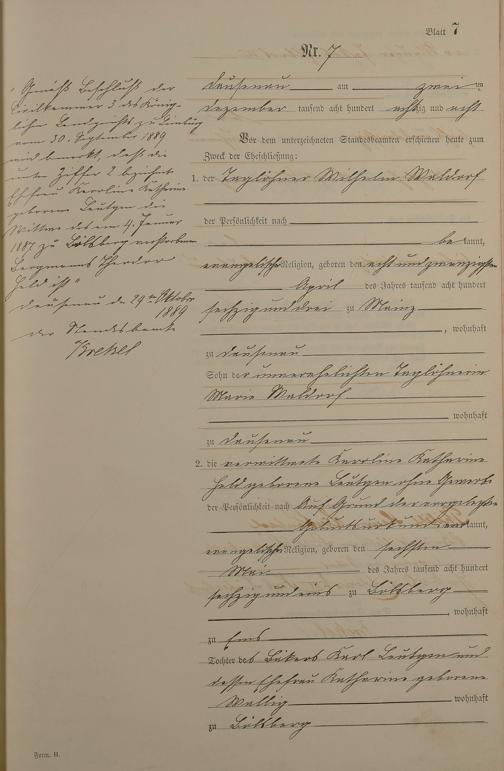 Blatt 7
Nr. 7
"Gemäß Beschluß der
Civilkammer 3 des König-
lichen Landgerichts zu Limburg
vom 30. September 1889
wird bemerkt, daß die
unter Ziffer 2 bezeichnete
Ehefrau Karoline Katharine
geborene Leutgen die
Wittwe des am 4. Januar
1887 zu Bölsberg verstorbenen
Bergmanns Theodor
Held ist"
Dausenau den 29ten Oktober
1889
der Standesbeamte
Dausenau am zwei ten
Dezember tausend acht hundert achtzig und acht
Vor dem unterzeichneten Standesbeamten erschienen heute zum
Zweck der Eheschließung:
1. der Taglöhner Wilhelm Waldorf
der Persönlichkeit nach
be kannt,
evangelischer Religion, geboren den acht und zwanzigsten
April des Jahres tausend acht hundert
sechzig und drei zu Mainz
, wohnhaft
zu Dausenau
Sohn der unverehelichten Taglöhnerin
Marie Waldorf
wohnhaft
zu Dausenau
2. die verwittwete Karoline Katharine
Held geborene Leutgen ohne Gewerbe
der Persönlichkeit nach Auf Grund der vorgelegten
Geburtsurkunde anerkannt,
evangelischer Religion, geboren den sechsten
Mai des Jahres tausend acht hundert
sechzig und eins zu Bölsberg
, wohnhaft
zu Ems
Tochter des Bäckers Karl Leutgen und
dessen Ehefrau Katharine geborene
wohnhaft
zu Bölsberg
Form. B.